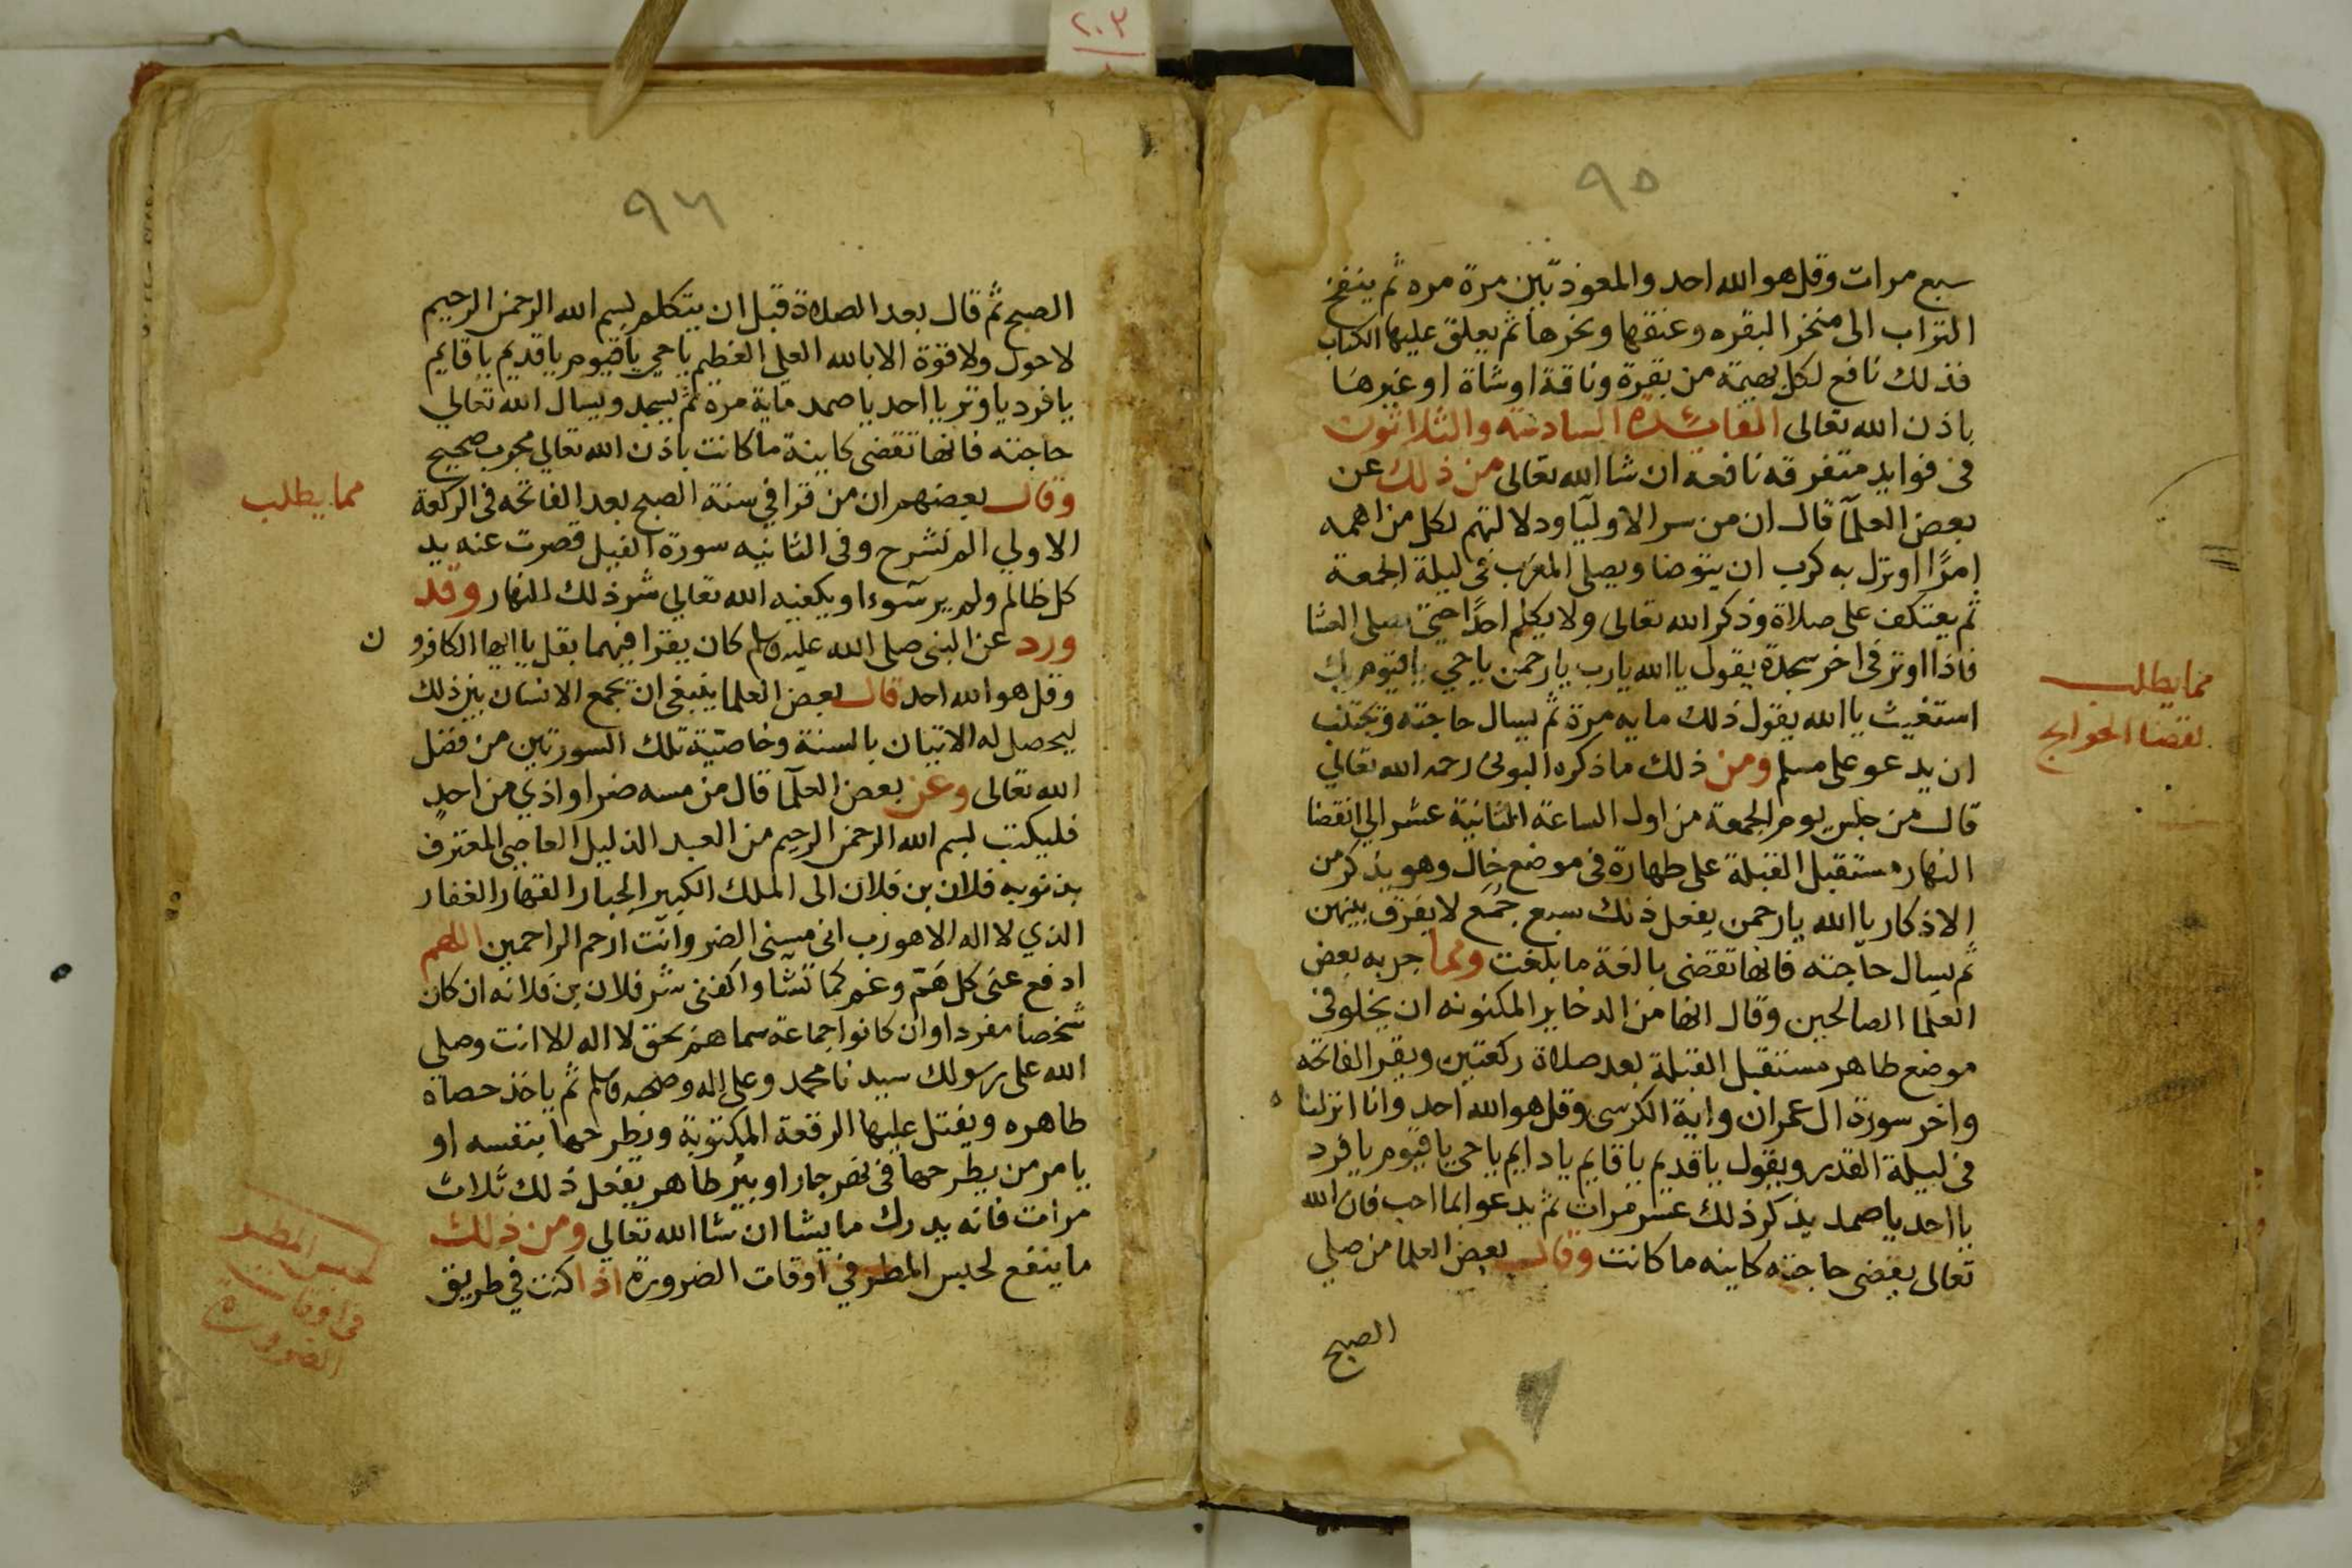 ٢٠٣
٩٥
سبع مرات وقل هو الله احد والمعوذتين مرة مره ثم ينفخ
التراب الى منخر البقره وعنقها ونحرها ثم يعلق عليها الكتاب
فذلك نافع لكل بهيمة من بقرة وناقة او شاة او غيرها
باذن الله تعالى الفائدة السادسة والثلاثون
فى فوايد متفرقه نافعه ان شا الله تعالى من ذلك عن
بعض العلمآ قال ان من سر الاوليا ودلالتهم لكل من اهمه
امرًا او نزل به كرب ان يتوضا ويصلى المغرب فى ليلة الجمعة
ثم يعتكف على صلاة وذكر الله تعالى ولا يكلم احدًا حتى يصلى العشا
فاذا اوتر فى اخر سجدة يقول يا الله يارب يارحمن ياحي ياقيوم بك
استغيث يا الله يقول ذلك مايه مرة ثم يسال حاجته ويجتنب
ان يدعو على مسلم ومن ذلك ما ذكره البونى رحمه الله تعالي
قال من جلس يوم الجمعة من اول الساعة الثانية عشر الى انقضا
النهار مستقبل القبلة على طهارة فى موضع خال وهو يذكر من
الاذكار يا الله يارحمن يفعل ذلك سبع جُمَع لا يفرق بينهن
ثم يسال حاجته فانها تقضى بالغة ما بلغت ومما جربه بعض
العلما الصالحين وقال انها من الدخاير المكنونه ان يخلو فى
موضع طاهر مستقبل القبلة بعد صلاة ركعتين ويقرا الفاتحه
واخر سورة ال عمران واية الكرسى وقل هو الله احد وانا انزلنا ه
فى ليلة القدر ويقول ياقديم ياقايم يادايم ياحي ياقيوم يافرد
يا احد ياصمد يذكر ذلك عشر مرات ثم يدعو ابما احب فان الله
تعالى يقضى حاجته كاينه ما كانت وقال بعض العلما من صلي
الصبح
مما يطلب
لقضا الحوايج
٩٦
الصبح ثم قال بعد الصلاة قبل ان يتكلم بسم الله الرحمن الرحيم
لاحول ولا قوة الا بالله العلي العظيم ياحي ياقيوم ياقديم ياقايم
يافرد ياوتر يا احد ياصمد ماية مرة ثم يسجد ويسال الله تعالي
حاجته فانها تقضى كاينة ما كانت باذن الله تعالي مجرب صحيح
وقال بعضهم ان من قرا في سنة الصبح بعد الفاتحه فى الركعة
الاولي الم نشرح وفى الثانيه سورة الفيل قصرت عنه يد
كل ظالم ولم ير سوءا ويكفيه الله تعالي شر ذلك النهار وقد
ورد عن النبى صلى الله عليه وسلم كان يقرا فيهما بقل يا ايها الكافرو ن
وقل هو الله احد قال بعض العلما ينبغى ان يجمع الانسان بين ذلك
ليحصل له الاتيان بالسنة وخاصيّة تلك السورتين من فضل
الله تعالى وعن بعض العلمآ قال من مسه ضر او اذي من احدٍ
فليكتب بسم الله الرحمن الرحيم من العبد الذليل العاصى المعترف
بذنوبه فلان بن فلان الى الملك الكبير الجبار القهار الغفار
الذي لا اله الا هو رب انى مسنى الضر وانت ارحم الراحمين اللهم
ادفع عنى كل هَمّ وغم كما تشآ واكفنى شر فلان بن فلانه ان كان
شخصا مفردا وان كانوا جماعة سماهم بحق لا اله الا انت وصلى
الله على رسولك سيدنا محمد وعلى اله وصحبه وسلم ثم ياخذ حصاة
طاهره ويفتل عليها الرقعة المكتوبة ويطرحها بنفسه او
يامر من يطرحها فى نهر جار او بير طاهر يفعل ذلك ثلاث
مرات فانه يدرك ما يشا ان شا الله تعالي ومن ذلك
ما ينفع لحبس المطر في اوقات الضرورة اذا كنت في طريق
مما يطلب
لحبس المطر
فى اوقات
الضرورة